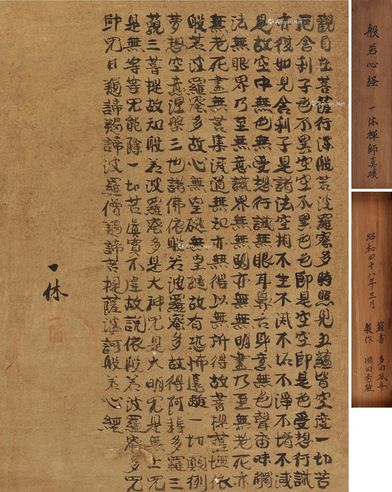 觀自在菩薩行深般若波羅蜜多時照見五蘊皆空度一切苦
厄舍利子色不異空空不異色色即是空空即是色受想行識
亦復如是舍利子是諸法空相不生不滅不垢不淨不增不減
是故空中無色無受想行識無眼耳鼻舌身意無色聲香味觸
法無眼界乃至無意識界無無明亦無無明盡乃至無老死亦
無老死盡無苦集滅道無智亦無得以無所得故菩提薩埵依
般若波羅蜜多故心無罣礙無罣礙故有恐怖遠離一切顛倒
夢想究竟涅槃三世諸佛依般若波羅蜜多故得阿耨多羅三
藐三菩提故知般若波羅蜜多是大神咒是大明咒是無上咒
是無等等咒能除一切苦真實不虛故說般若波羅蜜多咒
即咒曰羯諦羯諦波羅僧羯諦菩提薩婆訶般若心經
一休
般若心経 一休禅師真蹟
昭和四十八年三月
製作